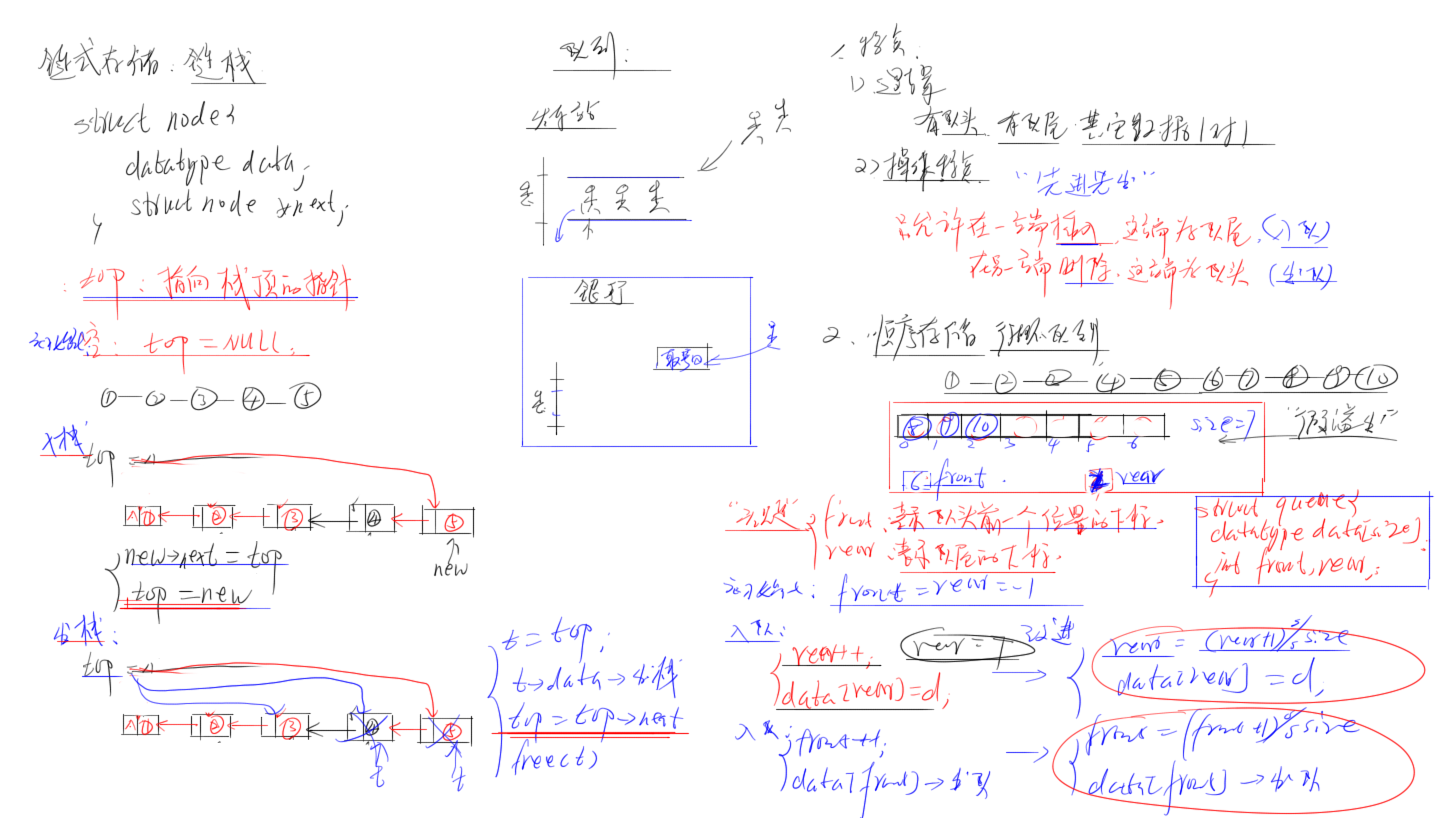 链式存储：链栈
struct node{
datatype data;
struct node *next;
}
top：指向栈顶的指针
初始化空：top=NULL;
①—②—③—④—⑤
入栈
top = ^
^ ① ② ③ ④ ⑤
new
new->next = top
top = new
出栈：
top = ^
^ ① ② ③ ④ ⑤
t t
t = top;
t->data->出栈
top = top->next
free(t)
队列：
火车站
银行
取号口
1、特点：
1)逻辑
有队头 有队尾 其它数据1对1
2)操作特点 "先进先出"
只允许在一端插入，这端为队尾，(入队)
在另一端删除，这端为队头 (出队)
2、顺序存储 循环队列
①—②—③—④—⑤—⑥—⑦—⑧—⑨—⑩
⑧ ⑨ ⑩ size=7 "假溢出"
0 1 2 3 4 5 6
6 front 2 rear
front：表示队头前一个位置的下标.
rear：表示队尾的下标.
struct queue{
datatype data[size];
int front,rear;
}
初始化：front=rear=-1
入队：
rear++;
data[rear]=d;
rear=7 改进
rear = (rear+1)%size
data[rear] = d;
入队
front++;
data[front]->出队
front = (front+1)%size
data[front]->出队